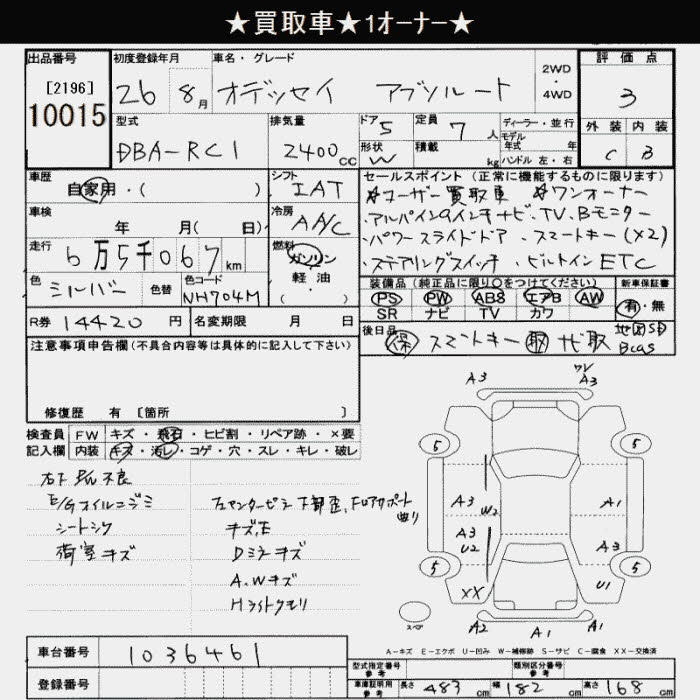 ★買取車★1オーナー★
出品番号 初度登録年月 車名・グレード 2WD・4WD 評価点
[2196] 10015 26 8月 オデッセイ アブソルート 3
型式 排気量 ドア 定員 ディーラー・並行 外装 内装
DBA-RC1 2400cc 5 7人 モデル年式 年 C B
形状 W 積載 kg ハンドル 左・右
車歴 自家用・( ) シフト IAT
セールスポイント(正常に機能するものに限ります)
☆ユーザー買取車 ☆ワンオーナー
・アルパイン9インチナビ、TV、Bモニター
・パワースライドドア、スマートキー(×2)
・ステアリングスイッチ・ビルトインETC
車検 年 月( 日) 冷房 A/C
走行 6万5千067km 燃料 ガソリン・軽油・( )
色 シルバー 色替 色コード NH704M
装備品(純正品に限り〇をつけてください) 新車保証書
PS PW ABS エアB AW 有・無
SR ナビ TV カワ
R券 14420円 名変期限 月 日
後日品 保 スマートキー 取 ナビ取 地図SD Bcas
注意事項申告欄(不具合内容等は具体的に記入して下さい)
修復歴 有 [箇所 ]
検査員 FW キズ・飛石・ヒビ割・リペア跡・×要
記入欄 内装 キズ・汚レ・コゲ・穴・スレ・キレ・破レ
E/Gオイルニジミ
シートシワ
荷室キズ
キズ,E
Dミラーキズ
A.Wキズ
Hライトクモリ
A3 A3
5 5
A3 W2 A1
A3 U2 A3
5 5
XX U1
スペア A2 A1 A1
A-キズ E-エクボ U-凹み W-補修跡 S-サビ C-腐食 XX-交換済
車台番号 1036461
型式指定番号 参考 類別区分番号 参考
登録番号
車庫証明用 参考 長さ 483cm 幅 182cm 高さ 168cm